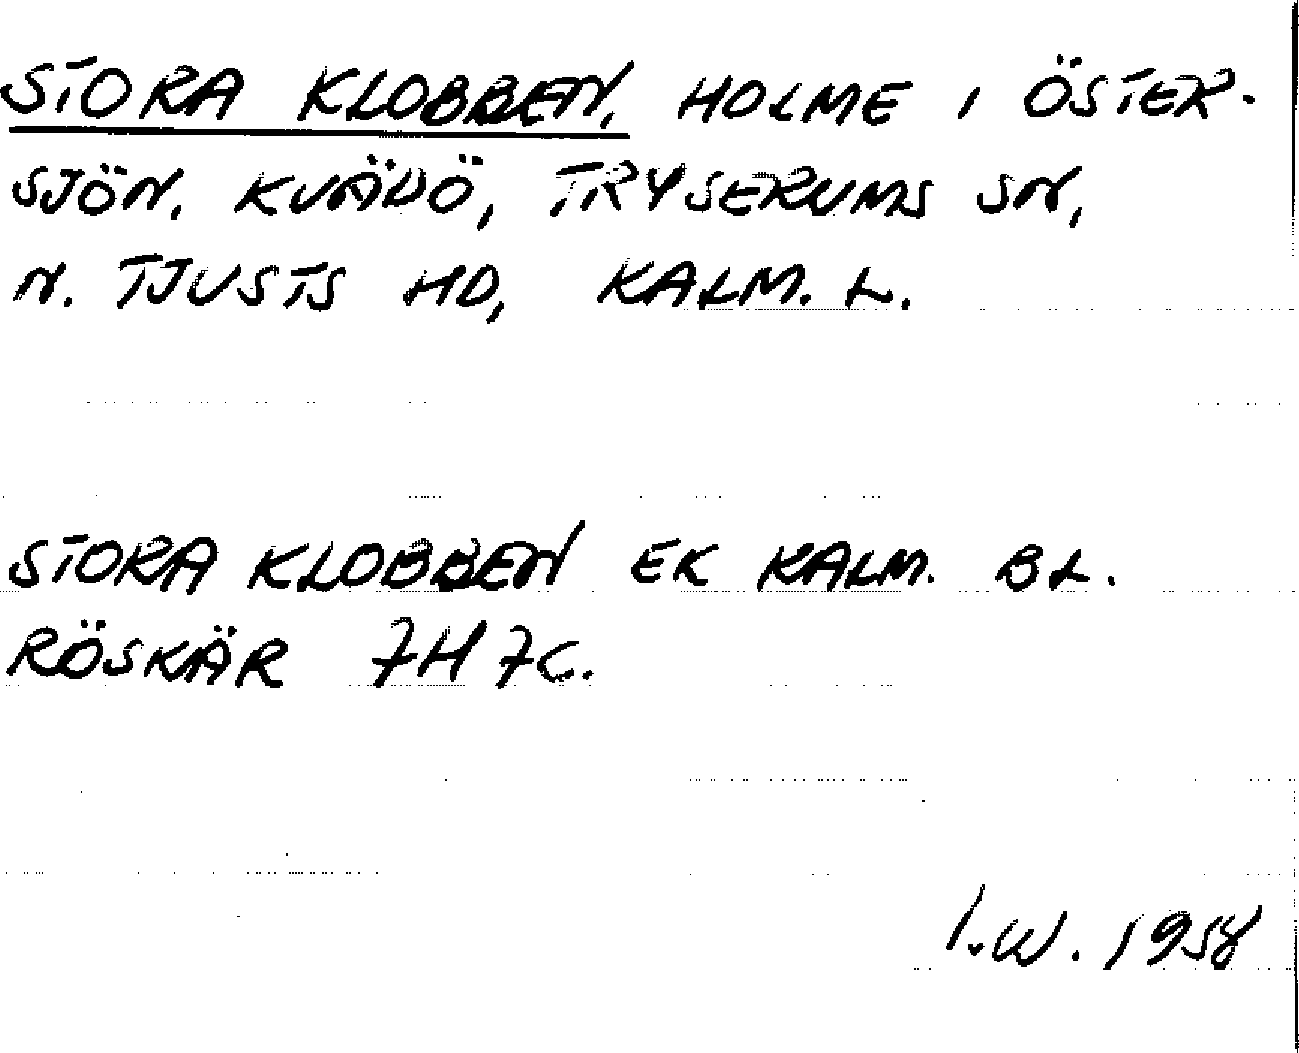 STORA KLOBBEN, HOLME I ÖSTER-
SJÖN. KVÄDÖ, TRYSERUMS SN,
N. TJUSTS HD, KALM. L.
STORA KLOBBEN EK KALM. BL.
RÖSKÄR 7H 7C.
I.W. 1958